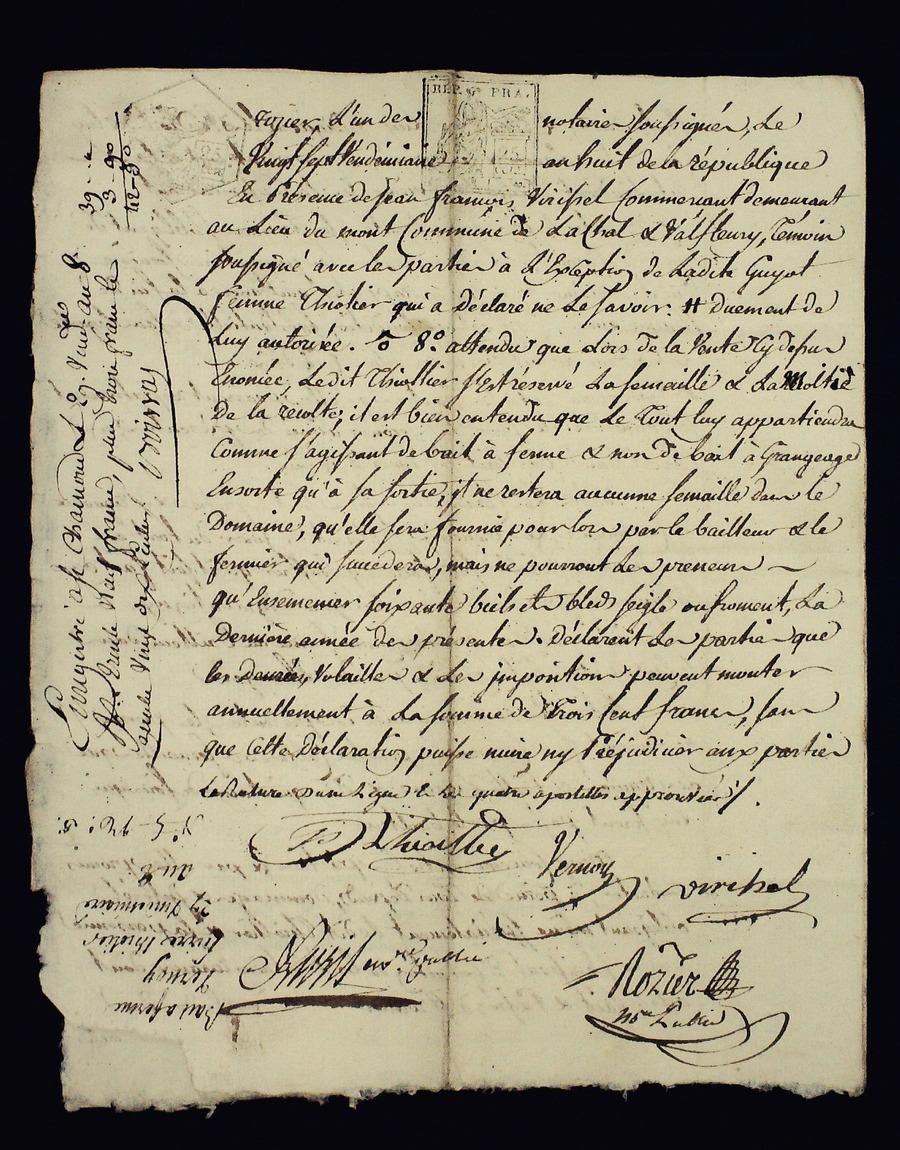 REP. FRA.
rozier, L'un des notaires soussignés, Le
Vingt sept Vendémiaire an huit de la république
En Présence de Jean françois Virissel Commercant demeurant
au Lieu du mont Commune de LaChal & Valfleury, Témoin
soussigné avec les parties à L'Exception de Ladite Guyot
femme Thiolier qui a Déclaré ne Le savoir. # Duement de
Luy autorisée. 8° attendu que Lors de la Vente Cy dessus
Enoncée, Ledit Thiollier s'Est réservé La semaille & La Moitié
De la récolte, il est bien entendu que Le Tout luy appartiendra
Comme s'agissant de bail à ferme & non de bail à Grangeage
Ensorte qu'à sa sortie, il ne restera aucunne semaille dans le
Domaine, qu'elle sera fournie pour lors par le bailleur & le
fermier qui succedera, mais ne pourront Les preneurs
qu'Ensemencer soixante bichets bled seigle ou froment, La
Dernière année des présentes. Déclarent Les parties que
les Denrées, Volailles & Les impositions peuvent monter
annuellement à La somme de Trois Cent francs, sans
que Cette Déclaration puisse nuire ny Préjudicier aux parties
La Rature d'une Ligne & Les quatre apostilles approuvées /.
Thiollier
Vernay
Virissel
nore Public
Rozier
nore Public
Enregistré à St Chamond Le 29 Vend. an 8
Trente neuf francs, plus trois francs
quatre Vingt dix Centimes
39
3 90
42 90
Bail à ferme
Vernay
Pierre Thiolier
27 Vendémiaire
an 8